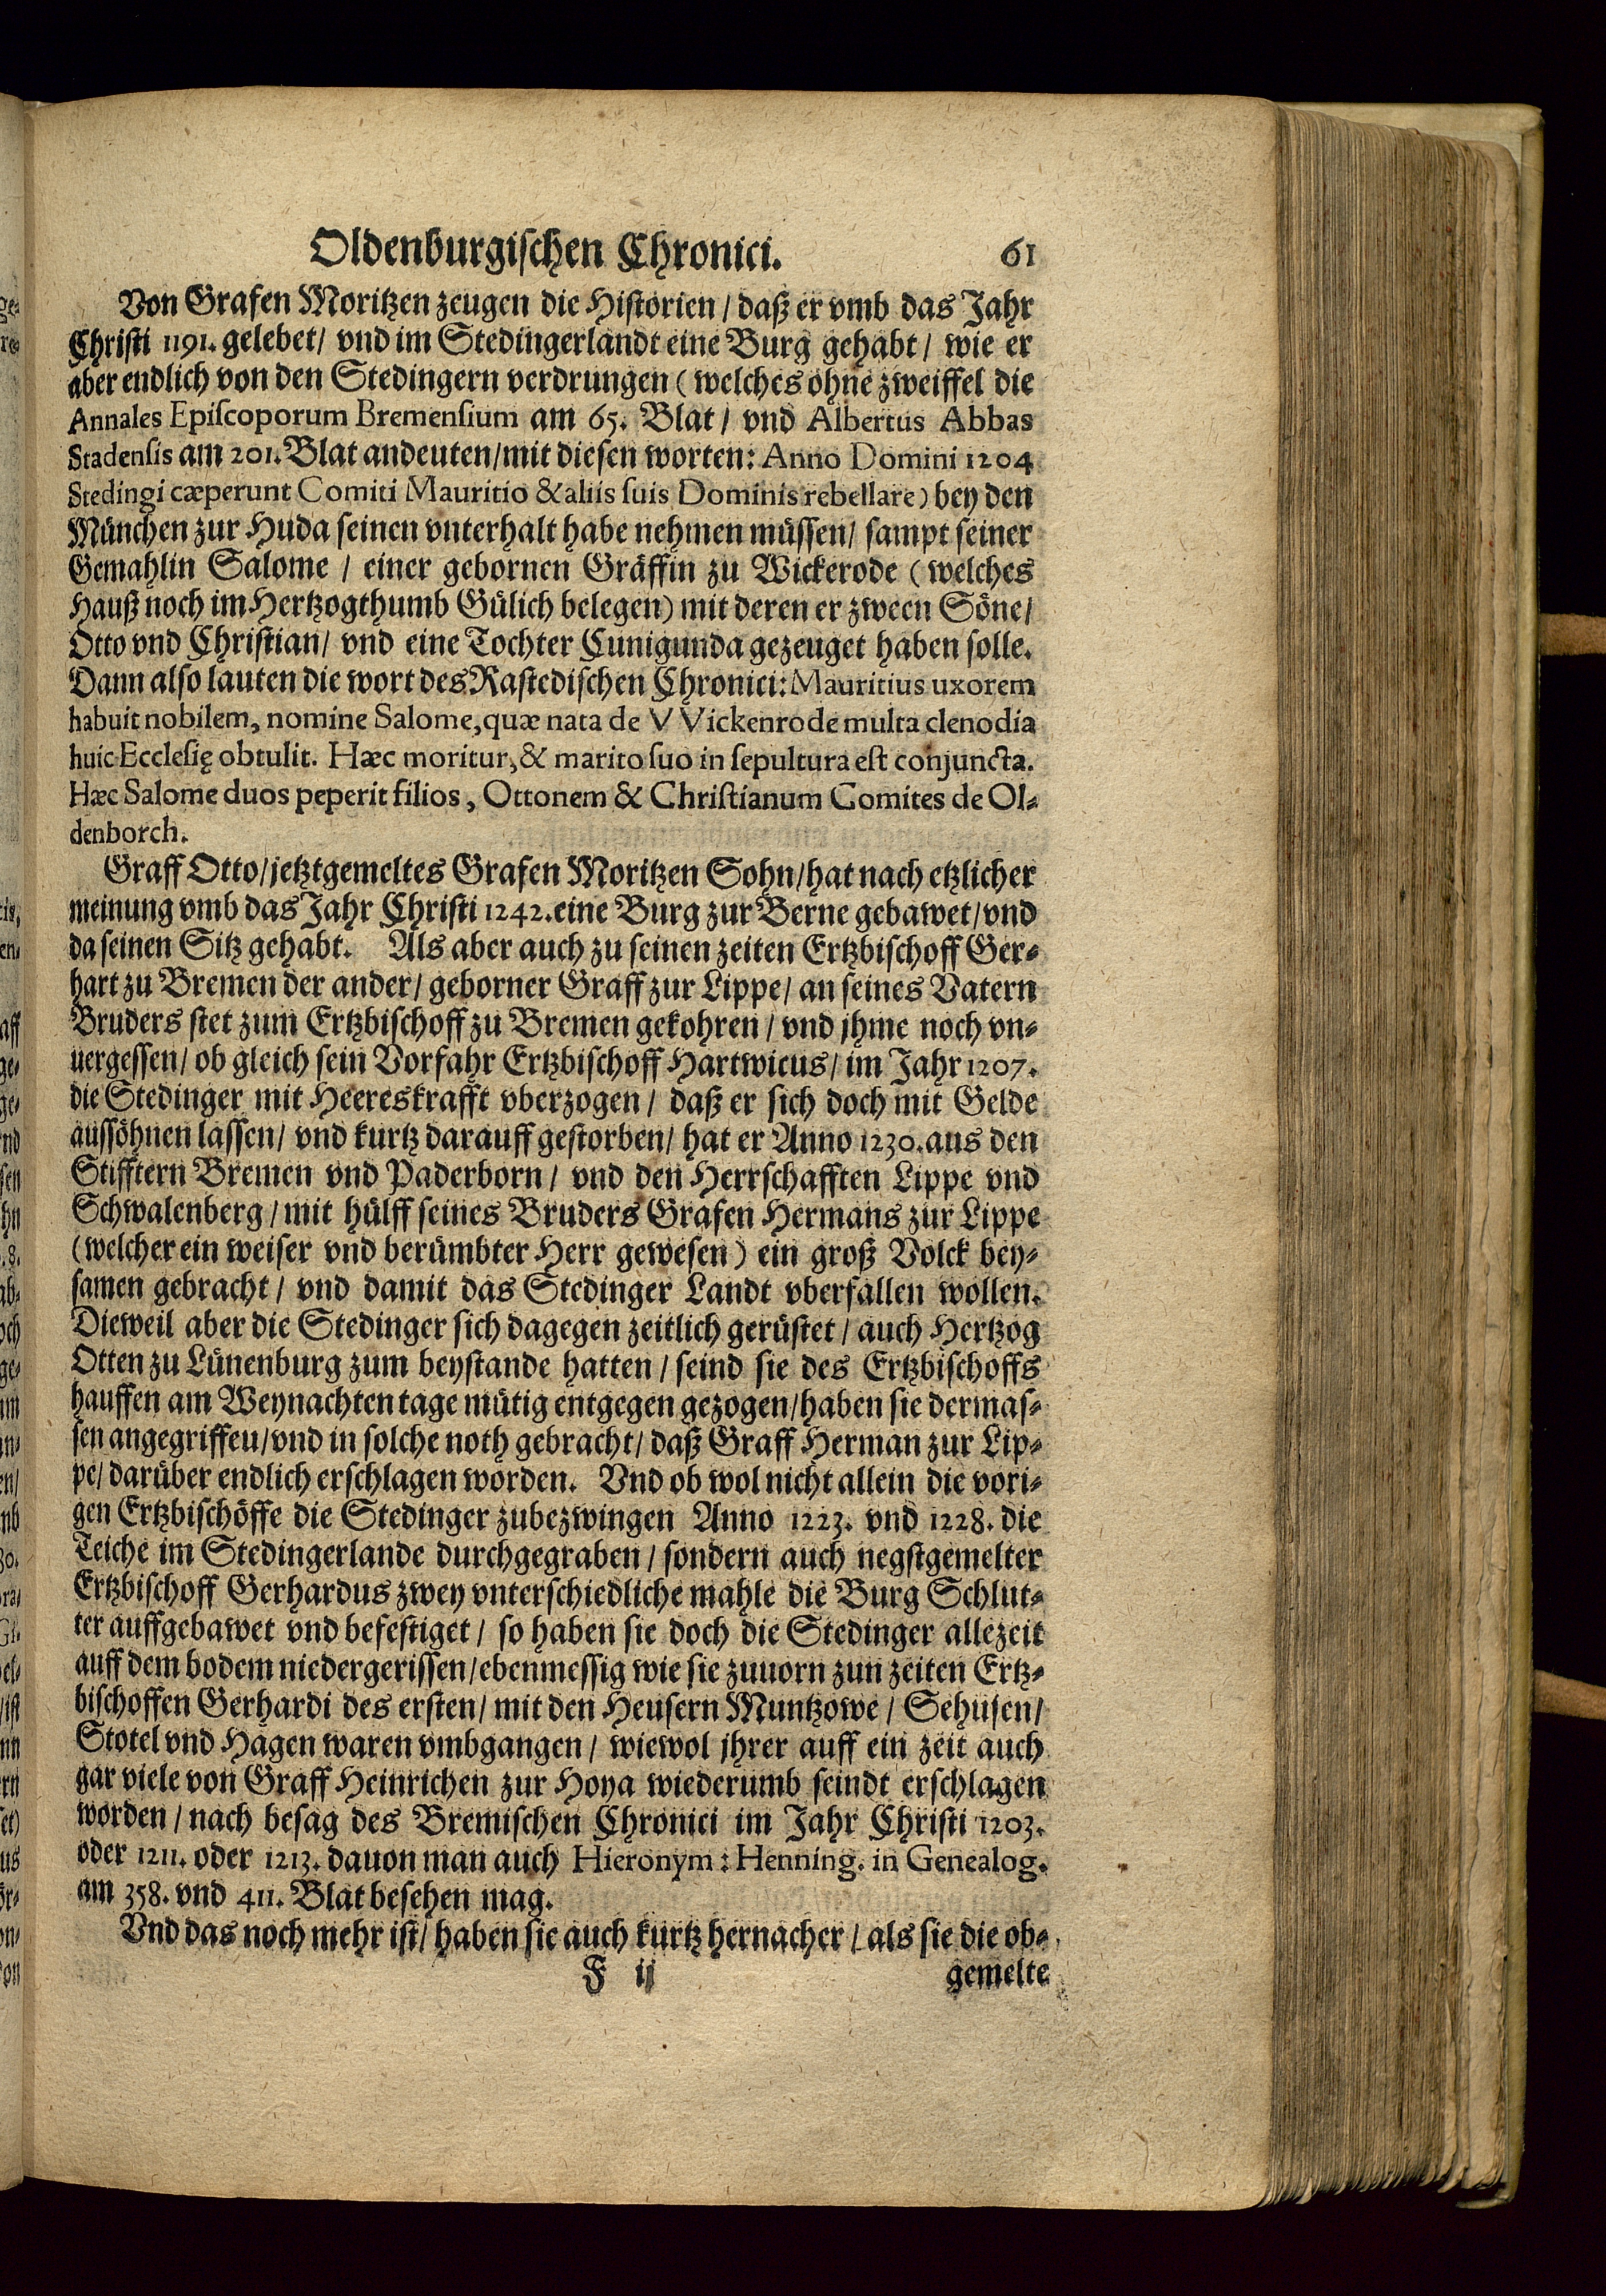 Oldenburgischen Chronici. 61
Von Grafen Moritzen zeugen die Historien / daß er vmb das Jahr
Christi 1191. gelebet / vnd im Stedingerlandt eine Burg gehabt / wie er
aber endlich von den Stedingern verdrungen (welches ohne zweiffel die
Annales Episcoporum Bremensium am 65. Blat / vnd Albertus Abbas
Stadensis am 201. Blat andeuten / mit diesen worten: Anno Domini 1204
Stedingi cæperunt Comiti Mauritio & aliis suis Dominis rebellare) bey den
München zur Huda seinen vnterhalt habe nehmen müssen / sampt seiner
Gemahlin Salome / einer gebornen Gräffin zu Wickerode (welches
Hauß noch im Hertzogthumb Gülich belegen) mit deren er zween Söne /
Otto vnd Christian / vnd eine Tochter Cunigunda gezeuget haben solle.
Dann also lauten die wort des Rastedischen Chronici: Mauritius uxorem
habuit nobilem, nomine Salome, quæ nata de VVickenrode multa clenodia
huic Ecclesię obtulit. Hæc moritur, & marito suo in sepultura est conjuncta.
Hæc Salome duos peperit filios, Ottonem & Christianum Comites de Ol-
denborch.
Graff Otto / jetztgemeltes Grafen Moritzen Sohn / hat nach etzlicher
meinung vmb das Jahr Christi 1242. eine Burg zur Berne gebawet / vnd
da seinen Sitz gehabt. Als aber auch zu seinen zeiten Ertzbischoff Ger-
hart zu Bremen der ander / geborner Graff zur Lippe / an seines Vatern
Bruders stet zum Ertzbischoff zu Bremen gekohren / vnd jhme noch vn-
uergessen / ob gleich sein Vorfahr Ertzbischoff Hartwicus / im Jahr 1207.
die Stedinger mit Heereskrafft vberzogen / daß er sich doch mit Gelde
aussöhnen lassen / vnd kurtz darauff gestorben / hat er Anno 1230. aus den
Stifftern Bremen vnd Paderborn / vnd den Herrschafften Lippe vnd
Schwalenberg / mit hülff seines Bruders Grafen Hermans zur Lippe
(welcher ein weiser vnd berümbter Herr gewesen) ein groß Volck bey-
samen gebracht / vnd damit das Stedinger Landt vberfallen wollen.
Dieweil aber die Stedinger sich dagegen zeitlich gerüstet / auch Hertzog
Otten zu Lünenburg zum beystande hatten / seind sie des Ertzbischoffs
hauffen am Weynachten tage mütig entgegen gezogen / haben sie dermas-
sen angegriffeu / vnd in solche noth gebracht / daß Graff Herman zur Lip-
pe / darüber endlich erschlagen worden. Vnd ob wol nicht allein die vori-
gen Ertzbischöffe die Stedinger zubezwingen Anno 1223. vnd 1228. die
Teiche im Stedingerlande durchgegraben / sondern auch negstgemelter
Ertzbischoff Gerhardus zwey vnterschiedliche mahle die Burg Schlut-
ter auffgebawet vnd befestiget / so haben sie doch die Stedinger allezeit
auff dem bodem niedergerissen / ebenmessig wie sie zuuorn zun zeiten Ertz-
bischoffen Gerhardi des ersten / mit den Heusern Muntzowe / Sehusen /
Stotel vnd Hagen waren vmbgangen / wiewol jhrer auff ein zeit auch
gar viele von Graff Heinrichen zur Hoya wiederumb seindt erschlagen
worden / nach besag des Bremischen Chronici im Jahr Christi 1203.
oder 1211. oder 1213. dauon man auch Hieronym: Henning. in Genealog.
am 358. vnd 411. Blat besehen mag.
Vnd das noch mehr ist / haben sie auch kurtz hernacher / als sie die ob-
F ij gemelte